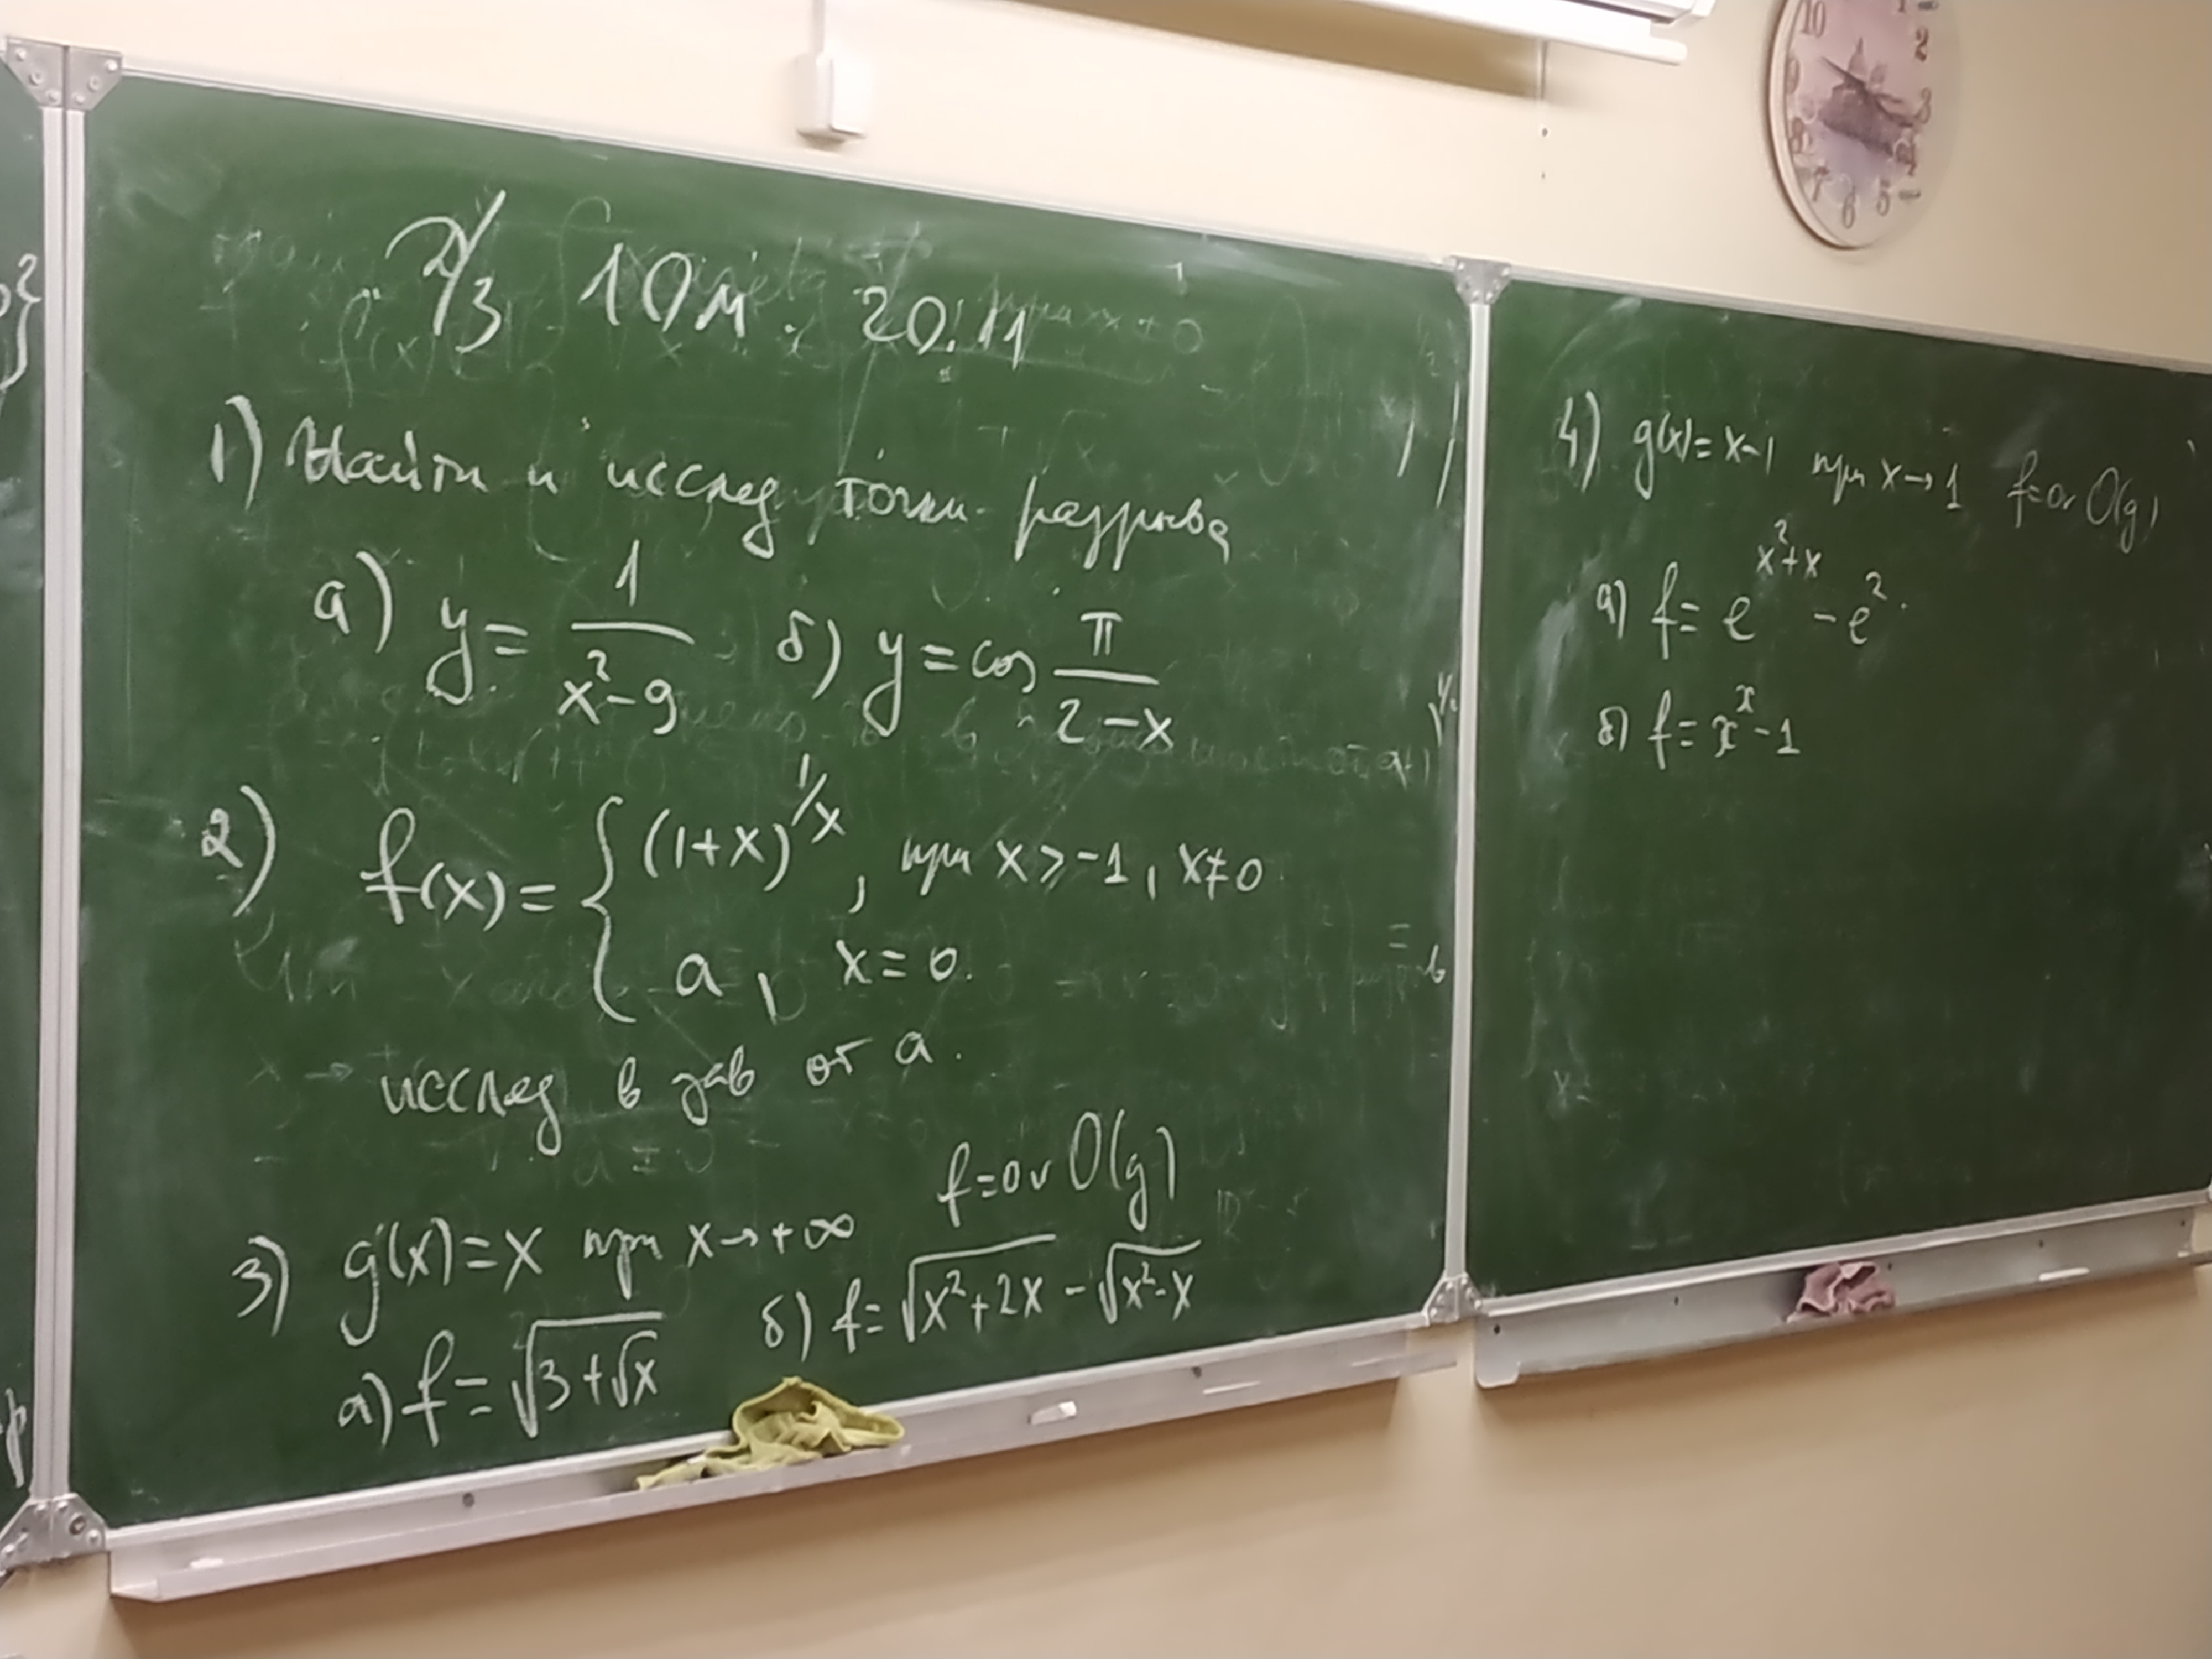 Д/З 10м. 20.11
1) Найти и исслед точки разрыва
а) y = 1/(x²-9) б) y = cos π/(2-x)
2) f(x) = { (1+x)^(1/x), при x > -1, x ≠ 0
a, x = 0.
исслед в зав от a.
f = o v O(g)
3) g(x) = x при x → +∞
а) f = √(3+√x) б) f = √(x²+2x) - √(x²-x)
4) g(x) = x-1 при x → 1 f = o v O(g)
а) f = e^(x²+x) - e².
б) f = x^x - 1
10
1
2
9
3
8
4
7
6
5